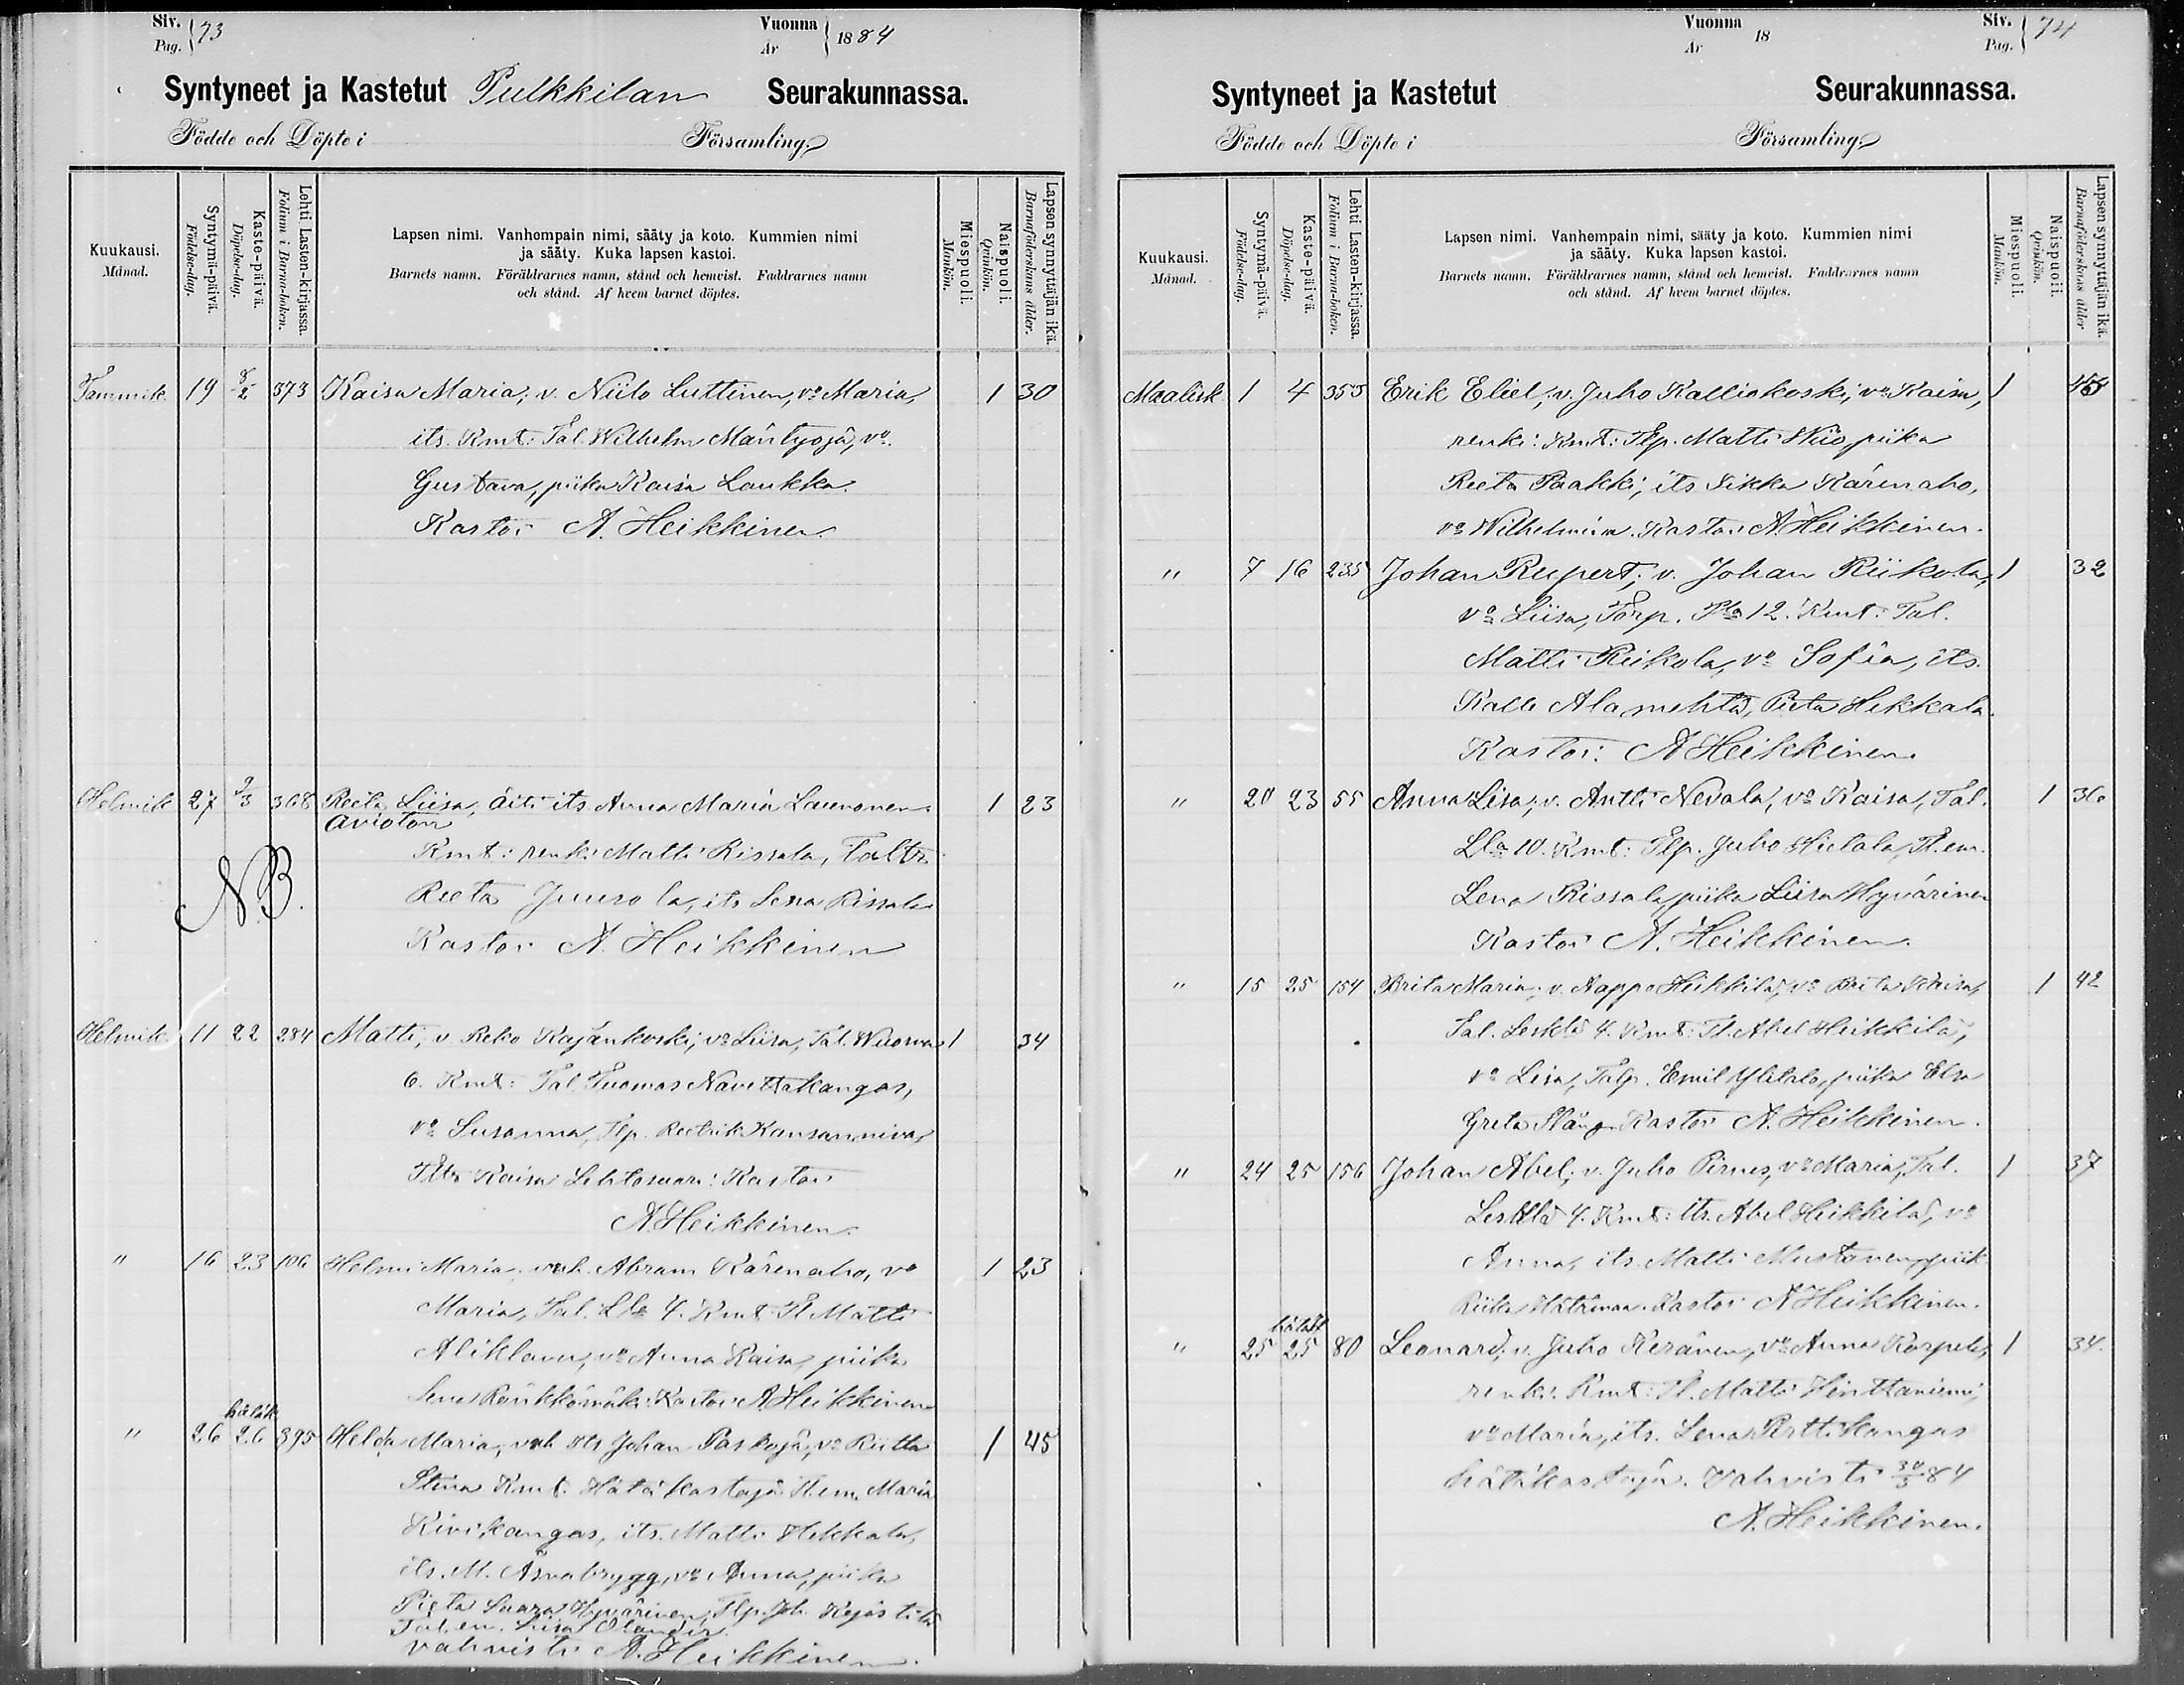 Siv. Pag. 73
Vuonna År 1884
Syntyneet ja Kastetut Pulkkilan Seurakunnassa.
Födde och Döpte i Församling.
Kuukausi. Månad.
Syntymä-päivä. Födelse-dag.
Kaste-päivä. Döpelse-dag.
Lehti Lasten-kirjassa. Folium i Barna-boken.
Lapsen nimi. Vanhempain nimi, sääty ja koto. Kummien nimi
ja sääty. Kuka lapsen kastoi.
Barnets namn. Föräldrarnes namn, stånd och hemvist. Faddrarnes namn
och stånd. Af hvem barnet döptes.
Miespuoli. Mankön.
Naispuoli. Qvinkön.
Lapsen synnyttäjän ikä. Barnaföderskans ålder.
Tammik. 19 8/2 373 Kaisa Maria; v. Niilo Luttinen, vo Maria, 1 30
its. Kmt: Tal. Wilhelm Mäntyoja, vo
Gustava, piika Kaisa Laukka.
Kastoi A. Heikkinen.
Helmik 27 9/3 368 Reeta Liisa, äiti its Anna Maria Launonen. 1 23
avioton
Kmt: renki Matti Rissala, Taltr
NB.
Reeta Juusola, its Lena Rissala
Kastoi A. Heikkinen
Helmik. 11 22 284 Matti, v Reko Kajänkoski, vo Liisa, Tal. Wuorma 1 34
6. Kmt: Tal. Tuomas Navettakangas,
vo Susanna, Tlp. Reetrik Kansanniva,
Tltr Kaisa Lehtosaari: Kastoi
A Heikkinen.
" 16 23 106 Helmi Maria, vanh. Abram Kärenaho, vo 1 23
Maria, Tal. Lla 4. Kmt: Tl. Matti
Aliklaavu, vo Anna Kaisa, piika
Lena Rönkkömäki: Kastoi A. Heikkinen
hätäk
" 26 26 395 Helda Maria, vanh its Johan Paskoja, vo Riitta 1 45
Stina Kmt. Hätäkastaja Tl.em. Maria
Kivikangas, its. Matti Hekkala,
its. M. Åsnabrygg, vo Anna, piika
Pieta Saara Hyvärinen, Tlp. Joh. Kejostila
Tal. em. Liisa Olander.
vahvisti A. Heikkinen.
Vuonna År 18
Siv. Pag. 74
Syntyneet ja Kastetut Seurakunnassa.
Födde och Döpte i Församling.
Kuukausi. Månad.
Syntymä-päivä. Födelse-dag.
Kaste-päivä. Döpelse-dag.
Lehti Lasten-kirjassa. Folium i Barna-boken.
Lapsen nimi. Vanhempain nimi, sääty ja koto. Kummien nimi
ja sääty. Kuka lapsen kastoi.
Barnets namn. Föräldrarnes namn, stånd och hemvist. Faddrarnes namn
och stånd. Af hvem barnet döptes.
Miespuoli. Mankön.
Naispuoli. Qvinkön.
Lapsen synnyttäjän ikä. Barnaföderskans ålder
Maalisk 1 4 353 Erik Eliel; v. Juho Kalliokoski; vo Kaisa, 1
renki: Kmt: Tlp. Matti Niio, piika
Reeta Paakki; its Kärenaho,
vo Wilhelmina. Kastoi A. Heikkinen.
" 7 16 235 Johan Rupert; v. Johan Riikola, 1 32
vo Liisa, Torp. Pla 12. Kmt: Tal.
Matti Riikola, vo Sofia, its.
Kalle Alamehtä, Hekkala.
Kastoi: A Heikkinen.
" 20 23 55 Anna Lisa; v. Antti Nevala, vo Kaisa, Tal. 1 36
Lla 10. Kmt: Tlp. Juho Hietala, Tl.em.
Lena Rissala, piika Liisa Hyvärinen
Kastoi A. Heikkinen.
" 15 25 154 Brita Maria; v. Aappo Heikkilä, vo Brita Kaisa, 1 42
Tal. Leskelä 4. Kmt: Tl. Abel Heikkilä,
vo Lisa, Talp. Emil Ylitalo, piika Elsa
Greta Kastoi A. Heikkinen.
" 24 25 156 Johan Abel; v. Juho Pirnes, vo Maria, Tal. 1 37
Leskelä 4. Kmt: its. Abel Heikkilä, vo
Anna, its. Matti Mustonen, piik
Kastoi A Heikkinen.
hätäk
" 25 25 80 Leonard; v. Juho Keränen, vo Anna Korpela, 1 34.
renki. Kmt: Tl. Matti Hinttaniemi,
vo Maria, its. Lena Perttikangas
hätäkastaja. Vahvisti 30/3 84
A. Heikkinen.